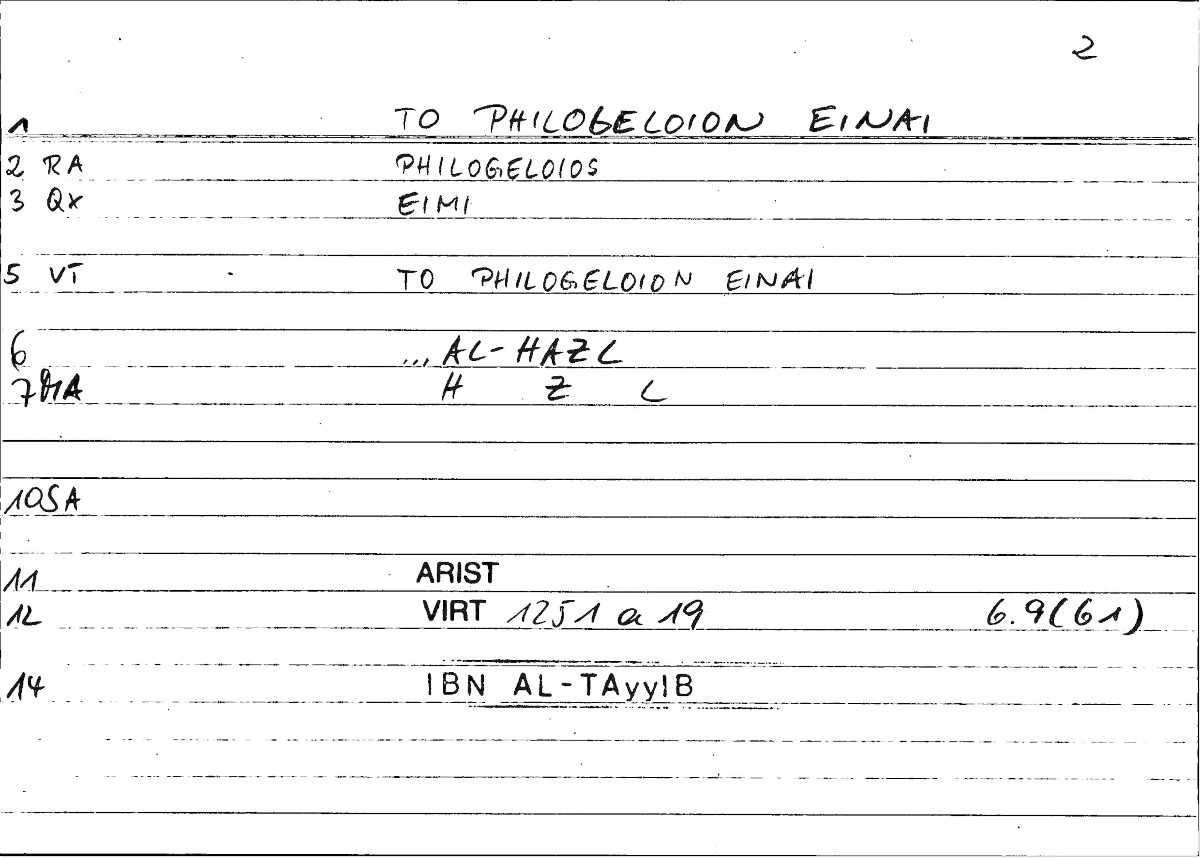 2
1 TO PHILOGELOION EINAI
2 RA PHILOGELOIOS
3 Qx EIMI
5 VT TO PHILOGELOION EINAI
6 ... AL-HAZL
7 MA H Z L
10 SA
11 ARIST
12 VIRT 1251 a 19 6.9(61)
14 IBN AL-TAyyIB